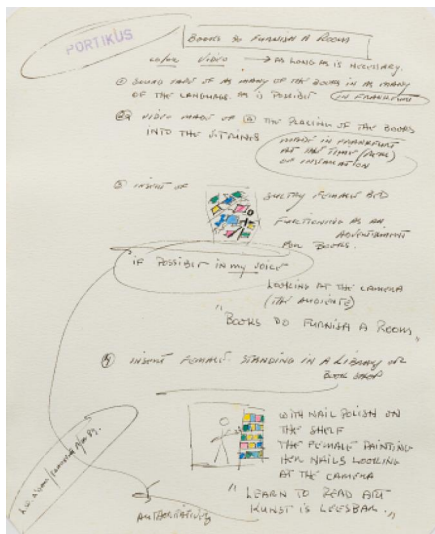 PORTIKUS
BOOKS DO FURNISH A ROOM
COLOR VIDEO → AS LONG AS IS NECESSARY.
① SOUND TAPE OF AS MANY OF THE BOOKS IN AS MANY
OF THE LANGUAGE. AS IS POSSIBLE IN FRANKFURT
② VIDEO MADE OF THE PLACING OF THE BOOKS
INTO THE STRINGS
MADE IN FRANKFURT
AT THE TIME
OF INSTALLATION
③ INSERT OF
SULTRY FEMALE BED
FUNCTIONING AS AN
ADVERTISMENT
FOR BOOKS.
IF POSSIBLE IN MY VOICE
LOOKING AT THE CAMERA
(THE AUDIENCE)
"BOOKS DO FURNISH A ROOM"
④ INSERT FEMALE. STANDING IN A LIBRARY OR
BOOK SHOP
WITH NAIL POLISH ON
THE SHELF
THE FEMALE PAINTING
HER NAILS LOOKING
AT THE CAMERA
" LEARN TO READ ART
KUNST IS LEESBAR."
AUTHORITATIVELY